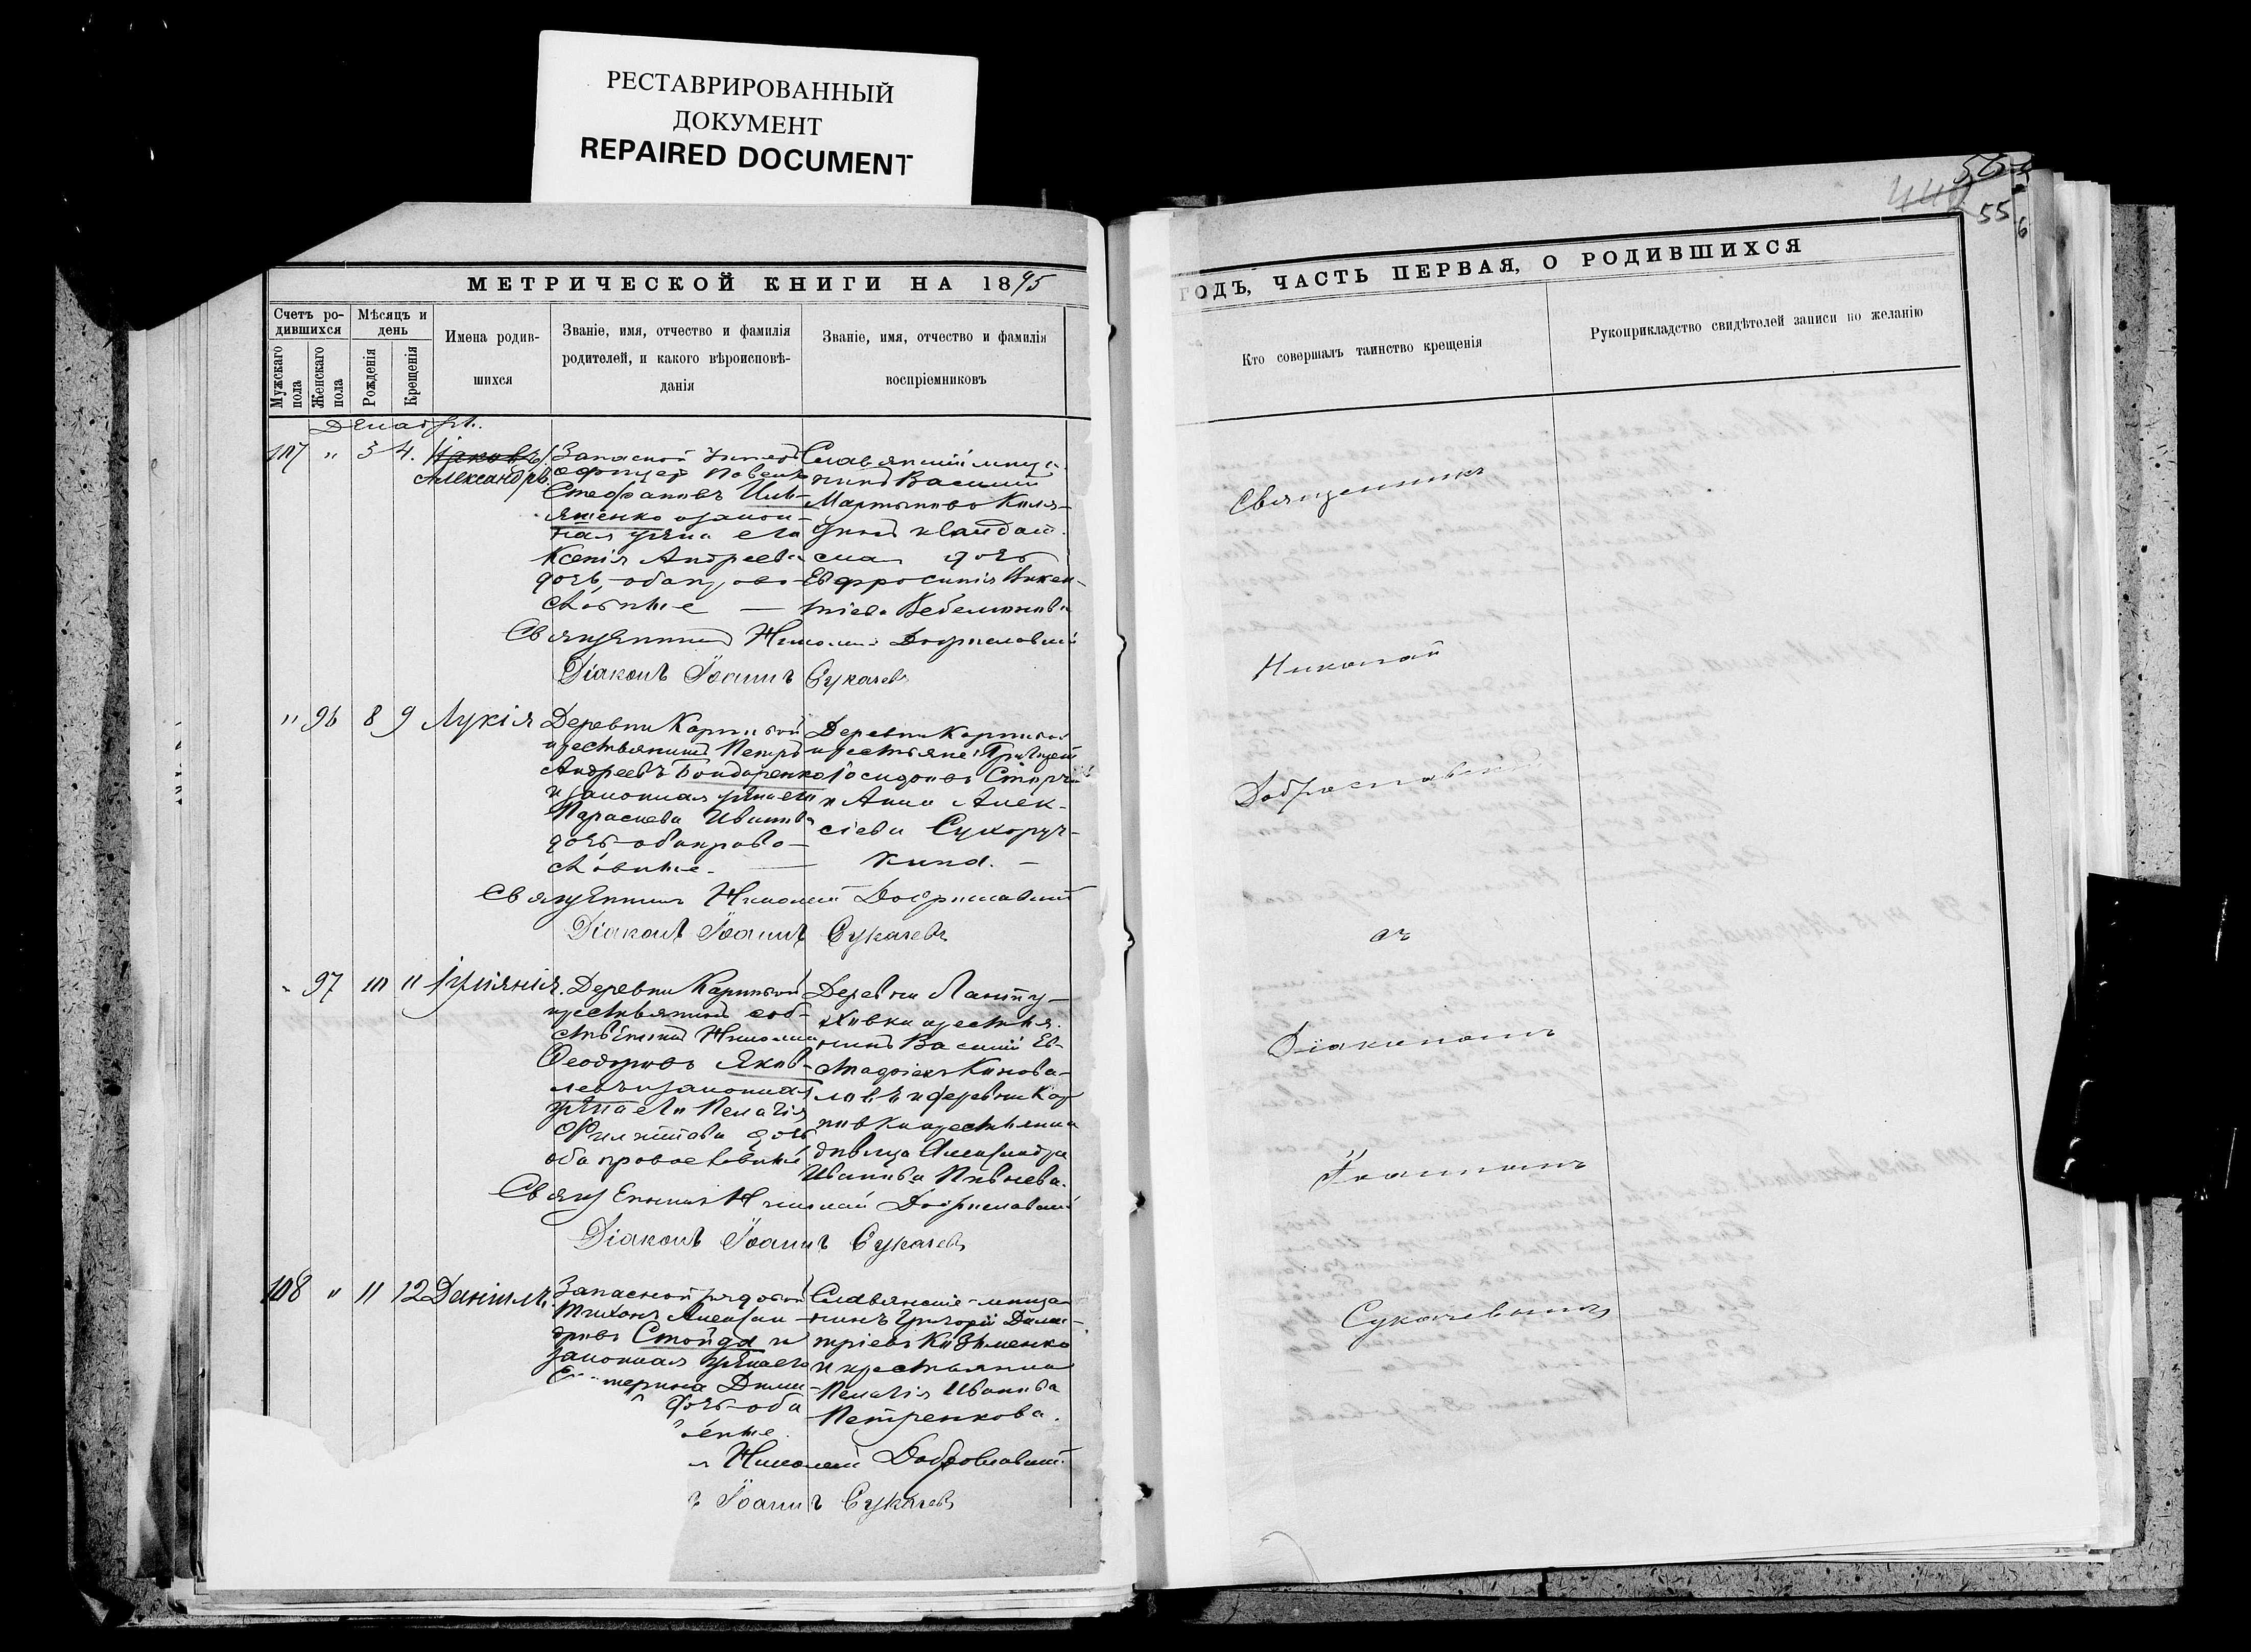 РЕСТАВРИРОВАННЫЙ
ДОКУМЕНТ
REPAIRED DOCUMENT
МЕТРИЧЕСКОЙ КНИГИ НА 1895
Счетъ ро-
дившихся
Мѣсяцъ и
день
Мужскаго
пола
Женскаго
пола
Рожденія
Крещенія
Имена родив-
шихся
Званіе, имя, отчество и фамилія
родителей, и какого вѣроисповѣ-
данія
Званіе, имя, отчество и фамилія
воспріемниковъ
Декабрь.
107 " 3 4. Іаковъ
Александръ.
Запасной унтеръ
офицеръ
Стефановъ Иль-
яшенко и закон-
ная жена его
Ксенія Андреева
дочь-оба право-
славные —
Славянскій мѣща-
нинъ Василій
Мартыновъ
дочь
Евфросинія Викен-
тіева
Священникъ Николай Доброславскій
Діаконъ Іоаннъ Сукачевъ
" 96 8 9 Лукія
Деревни Карповой
крестьянинъ Петръ
Андреевъ Бондаренко
и законная жена его
Параскева Иванова
дочь-оба право-
славные. —
Деревни Карповой
крестьяне: Григорій
и Анна Алек-
сіева Сухоруч-
кина. —
Священникъ Николай Доброславскій
Діаконъ Іоаннъ Сукачевъ
" 97 10 11
Деревни Карповой
крестьянинъ соб-
ственникъ Николай
Ѳеодоровъ Яков-
левъ и законная
жена его Пелагія
Филиппова дочь
оба православные
Деревни
крестья-
нинъ Василій Ев-
стафіевъ Конова-
ловъ и деревни Кар-
повки крестьянка
дѣвица Александра
Иванова Пивнева.
Священникъ Николай Доброславскій
Діаконъ Іоаннъ Сукачевъ
108 " 11 12 Даніилъ.
Запасной рядовой
Тихонъ Алексан-
дровъ Стойда и
законная жена его
терина Дими-
дочь-оба
Славянскіе-мѣща-
нинъ Григорій Дими-
тріевъ Кузьменко
и крестьянка
Пелагія Иванова
Петренкова.
Николай Доброславскій.
ъ Іоаннъ Сукачевъ
55
ГОДЪ, ЧАСТЬ ПЕРВАЯ, О РОДИВШИХСЯ
Кто совершалъ таинство крещенія
Рукоприкладство свидѣтелей записи по желанію
Священникъ
Николай
Доброславскій
съ
Діакономъ
Іоанномъ
Сукачевымъ